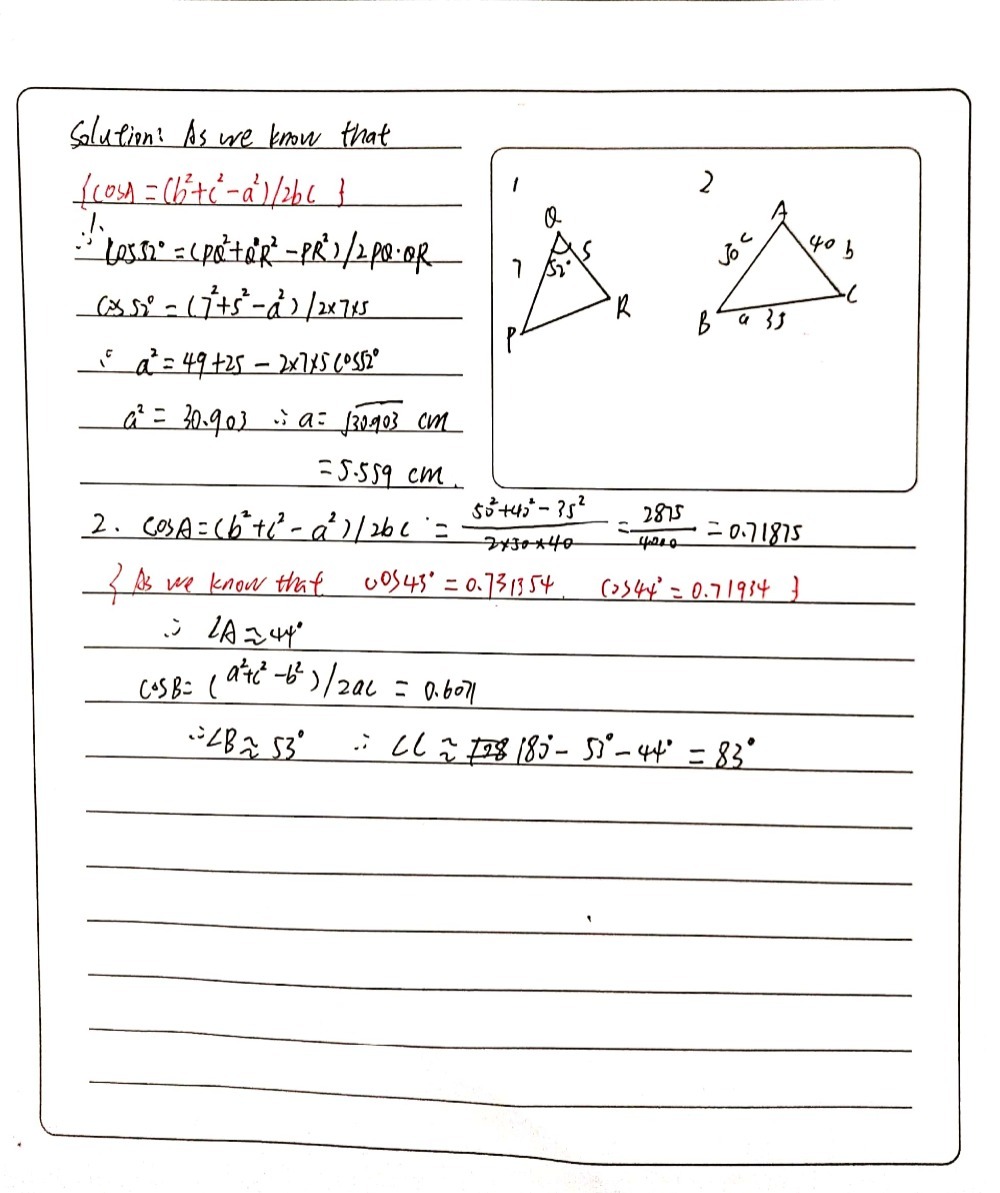 Solution: As we know that
{cosA = (b²+c²-a²)/2bc }
∴ cos52° = (PQ²+QR²-PR²)/2PQ·QR
cos 52° = (7²+5²-a²)/2x7x5
∴ a² = 49+25 - 2x7x5 cos52°
a² = 30.903 ∴ a= √30.903 cm
=5.559 cm.
1
Q
7 52° 5
P R
2
A
50 c 40 b
B a 35 C
2. cosA=(b²+c²-a²)/2bc = 50²+40²-35² / 2x50x40 = 2875 / 4000 = 0.71875
{ As we know that cos43° = 0.731354. cos44° = 0.71934 }
∴ ∠A ≈ 44°
cosB= (a²+c²-b²)/2ac = 0.6071
∴∠B ≈ 53° ∴ ∠C ≈ 180°- 53°-44° = 83°